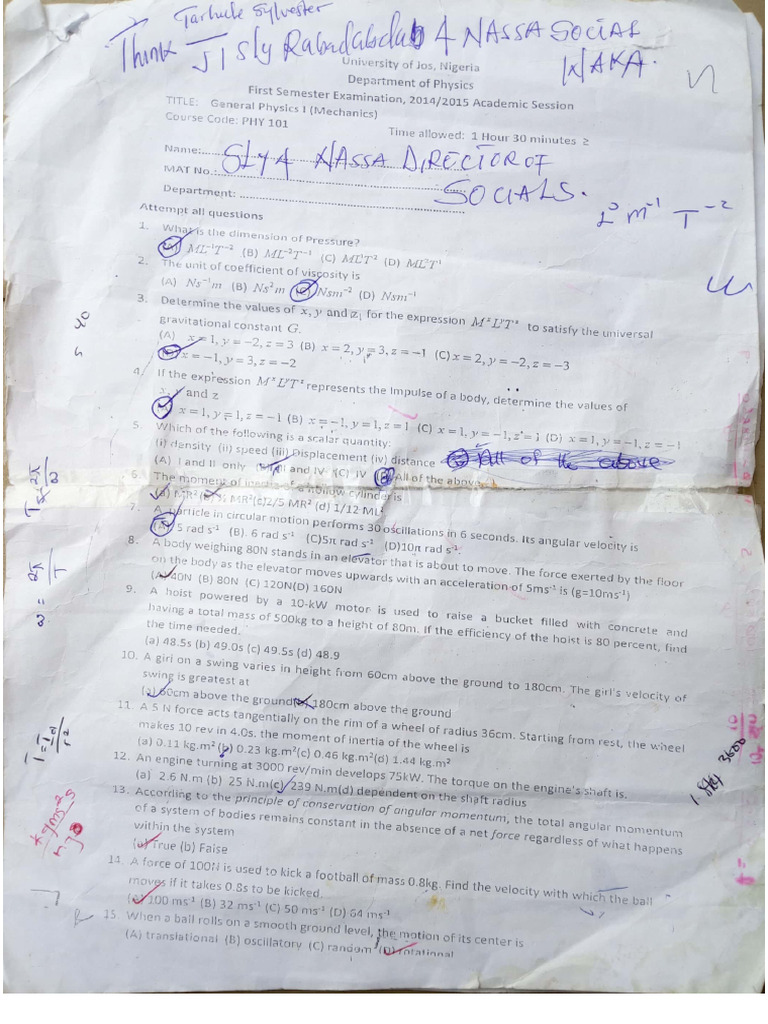 Tarhule Sylvester
Think JJ Sly Rabadabdab 4 NASSA SOCIAL
WAKA.
University of Jos, Nigeria
Department of Physics
First Semester Examination, 2014/2015 Academic Session
TITLE: General Physics I (Mechanics)
Course Code: PHY 101
Time allowed: 1 Hour 30 minutes ≥
Name:
SLY 4 NASSA DIRECTOR OF
MAT No.:
SOCIALS.
Department:
L³ m⁻¹ T⁻²
Attempt all questions
1. What is the dimension of Pressure?
(A) ML⁻¹T⁻² (B) ML⁻²T⁻¹ (C) ML¹T² (D) ML²T¹
2. The unit of coefficient of viscosity is
(A) Ns⁻¹m (B) Ns²m (C) Nsm⁻² (D) Nsm⁻¹
3. Determine the values of x, y and z, for the expression MˣLʸTᶻ to satisfy the universal
gravitational constant G.
(A) x = 1, y = −2, z = 3 (B) x = 2, y = 3, z = −1 (C) x = 2, y = −2, z = −3
x = −1, y = 3, z = −2
4. If the expression MˣLʸTᶻ represents the Impulse of a body, determine the values of
x, y and z
(A) x = 1, y = 1, z = −1 (B) x = −1, y = 1, z = 1 (C) x = 1, y = −1, z = 1 (D) x = 1, y = −1, z = −1
5. Which of the following is a scalar quantity:
(i) density (ii) speed (iii) Displacement (iv) distance
All of the above
(A) I and II only II and IV (C) iV All of the above
6. The moment of inertia of a hollow cylinder is
(a) MR² MR²(c)2/5 MR² (d) 1/12 ML²
7. A particle in circular motion performs 30 oscillations in 6 seconds. Its angular velocity is
(A) 5 rad s⁻¹ (B). 6 rad s⁻¹ (C)5π rad s⁻¹ (D)10π rad s⁻¹.
8. A body weighing 80N stands in an elevator that is about to move. The force exerted by the floor
on the body as the elevator moves upwards with an acceleration of 5ms⁻¹ is (g=10ms⁻¹)
(A) 40N (B) 80N (C) 120N(D) 160N
9. A hoist powered by a 10-kW motor is used to raise a bucket filled with concrete and
having a total mass of 500kg to a height of 80m. If the efficiency of the hoist is 80 percent, find
the time needed.
(a) 48.5s (b) 49.0s (c) 49.5s (d) 48.9
10. A girl on a swing varies in height from 60cm above the ground to 180cm. The girl's velocity of
swing is greatest at
(a) 60cm above the ground 180cm above the ground
11. A 5 N force acts tangentially on the rim of a wheel of radius 36cm. Starting from rest, the wheel
makes 10 rev in 4.0s. the moment of inertia of the wheel is
(a) 0.11 kg.m² (b) 0.23 kg.m²(c) 0.46 kg.m²(d) 1.44 kg.m²
12. An engine turning at 3000 rev/min develops 75kW. The torque on the engine's shaft is.
(a) 2.6 N.m (b) 25 N.m(c) 239 N.m(d) dependent on the shaft radius
13. According to the principle of conservation of angular momentum, the total angular momentum
of a system of bodies remains constant in the absence of a net force regardless of what happens
within the system
(a) True (b) False
14. A force of 100N is used to kick a football of mass 0.8kg. Find the velocity with which the ball
moves if it takes 0.8s to be kicked.
100 ms⁻¹ (B) 32 ms⁻¹ (C) 50 ms⁻¹ (D) 64 ms⁻¹
15. When a ball rolls on a smooth ground level, the motion of its center is
(A) translational (B) oscillatory (C) random (D) rotational